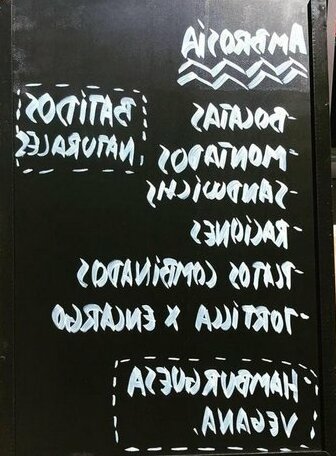 AMBROSIA
BATIDOS
NATURALES
-BOCATAS
-MONTADOS
-SANDWICHS
-RACIONES
-PLATOS COMBINADOS
-TORTILLA X ENCARGO
-HAMBURGUESA
VEGANA.